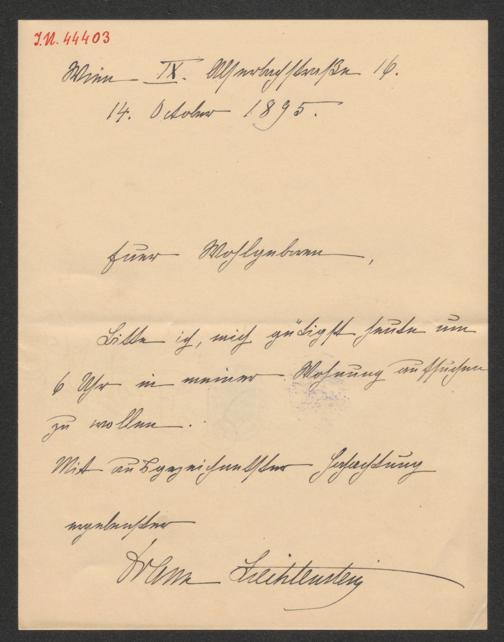 I.N. 44403
Wien IX. Alserbachstraße 16.
14. October 1895.
Euer Wohlgeboren,
Bitte ich, mich gütigst heute um
6 Uhr in meiner Wohnung aufsuchen
zu wollen.
Mit ausgezeichnetster Hochachtung
ergebenster
Liechtenstein